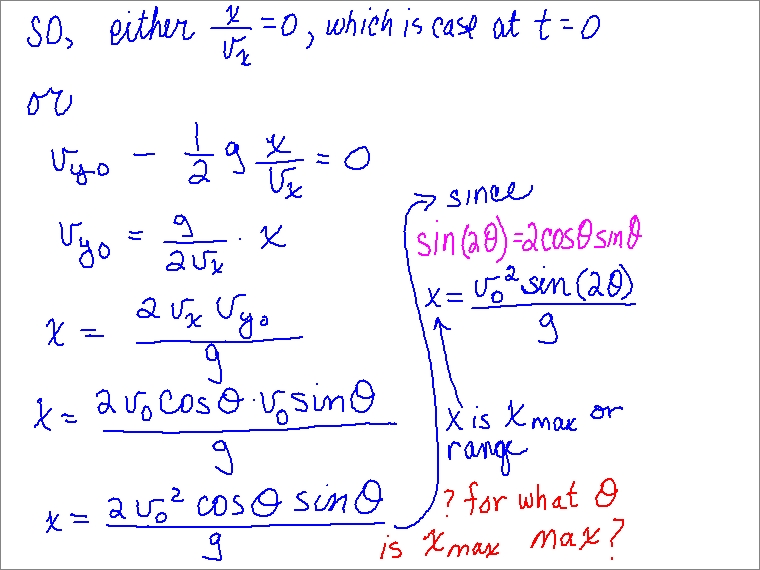 SO, either x/v_x = 0, which is case at t = 0
or
v_y0 - 1/2 g x/v_x = 0
v_y0 = g/2v_x · x
x = 2 v_x v_y0 / g
x = 2 v_0 cosθ · v_0 sinθ / g
x = 2 v_0² cosθ sinθ / g
since
sin(2θ) = 2cosθ sinθ
x = v_0² sin(2θ) / g
x is x_max or
range
? for what θ
is x_max max?